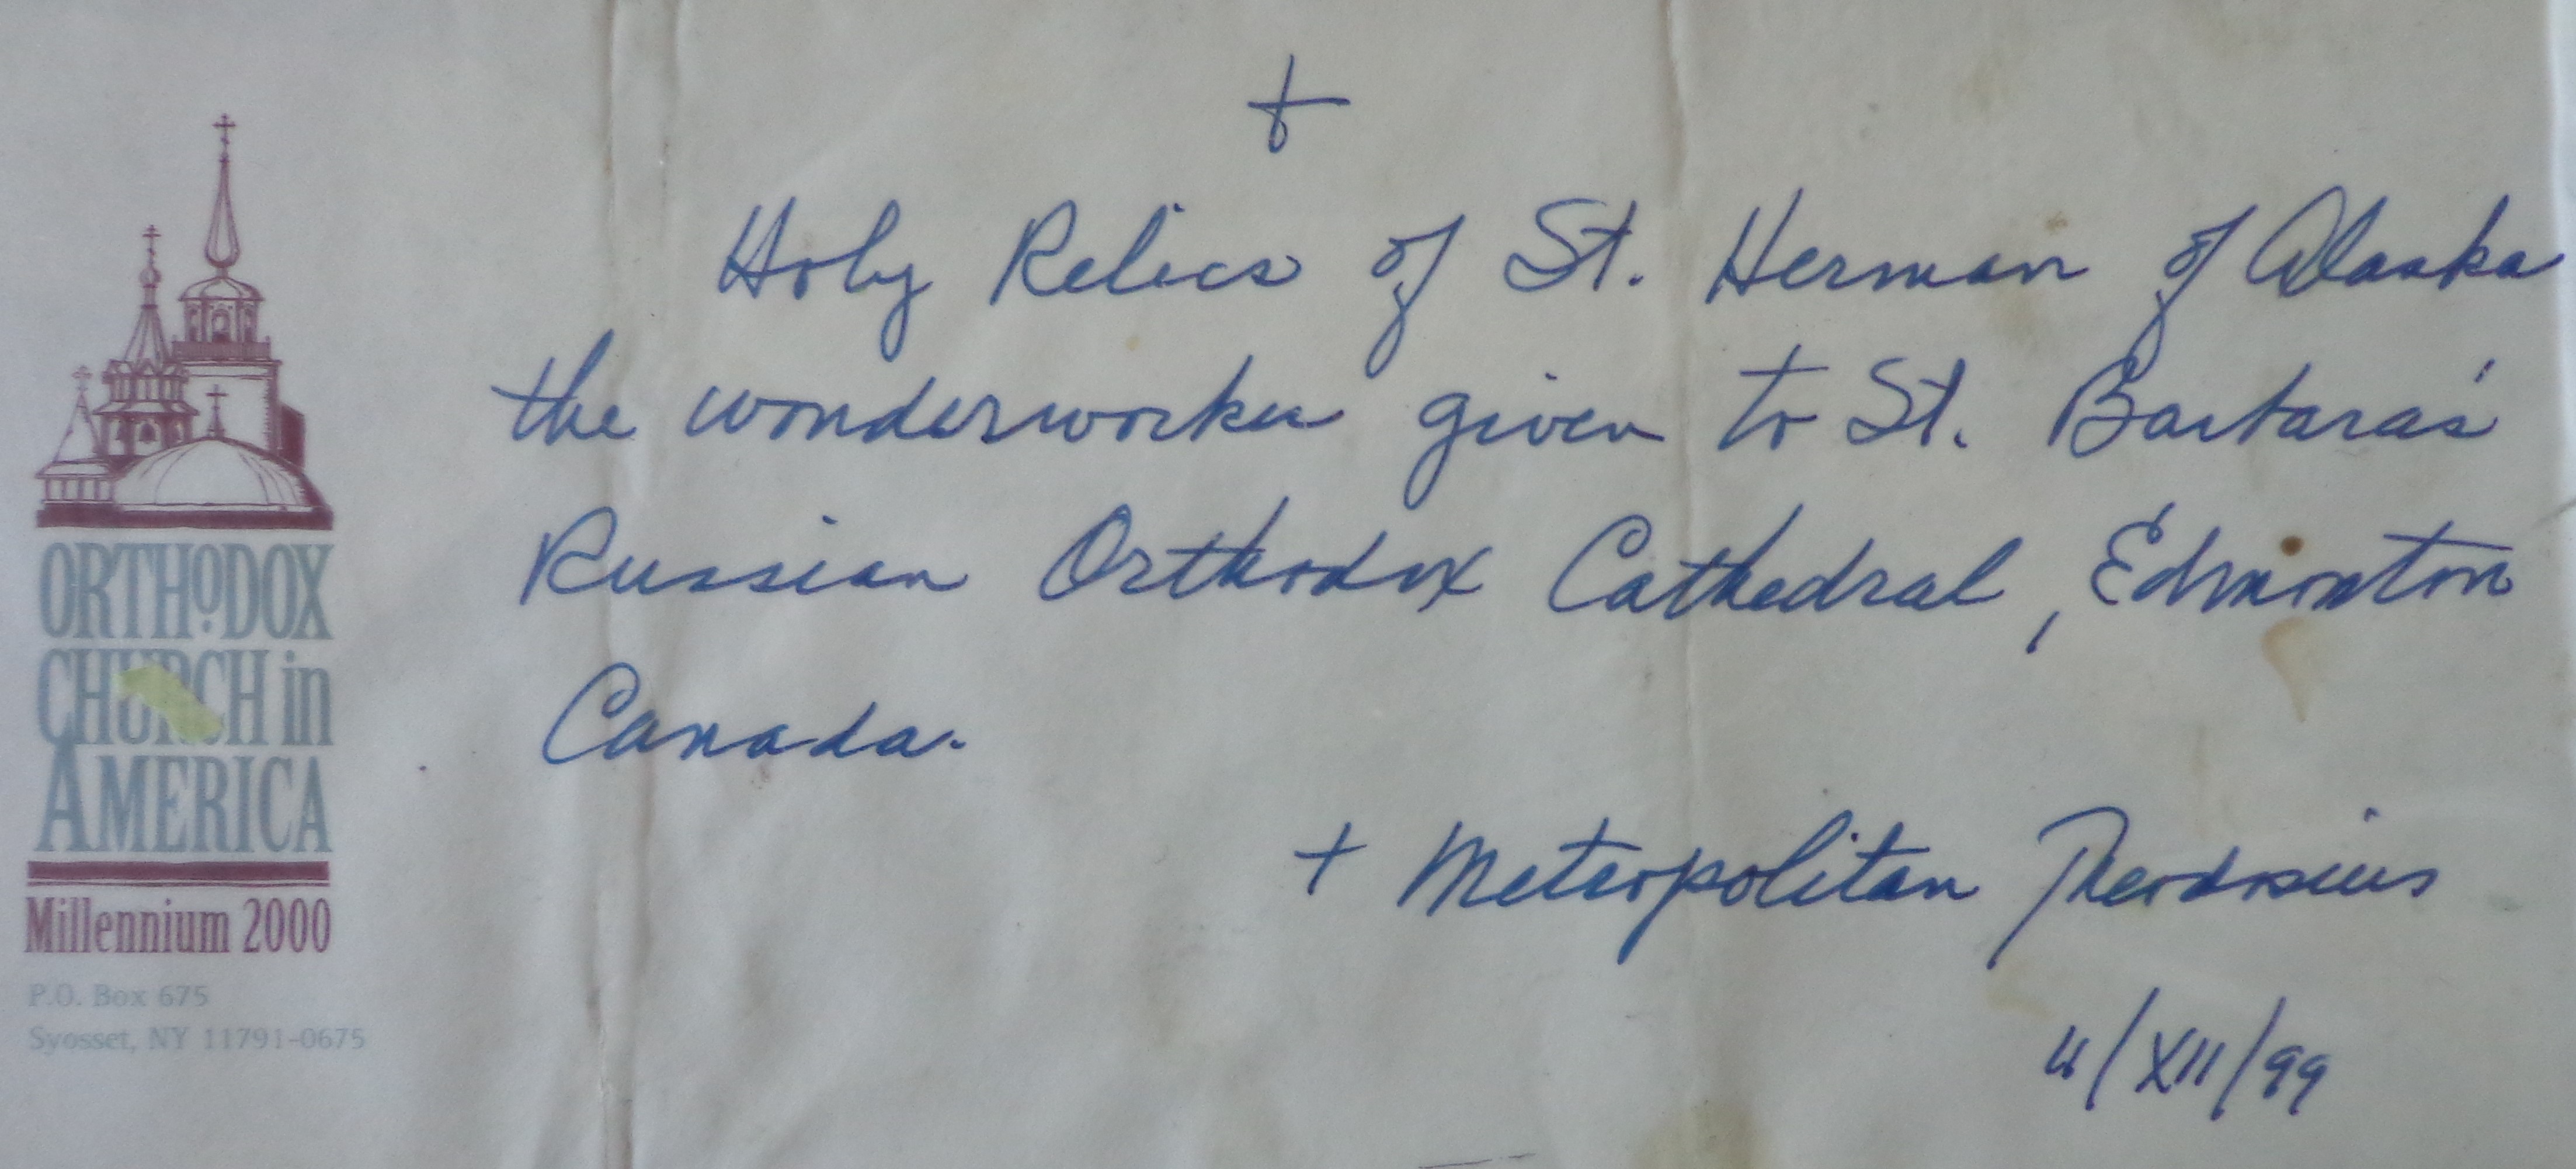 +
Holy Relics of St. Herman of Alaska
the wonderworker given to St. Barbara's
Russian Orthodox Cathedral, Edmonton
Canada.
+ Metropolitan Theodosius
4/XII/99
ORTHODOX
CHURCH in
AMERICA
Millennium 2000
P.O. Box 675
Syosset, NY 11791-0675